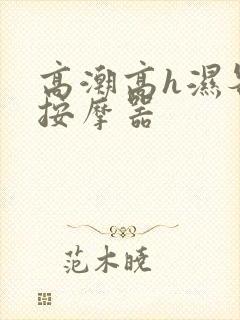 高潮高h濕
按摩器
范木晓